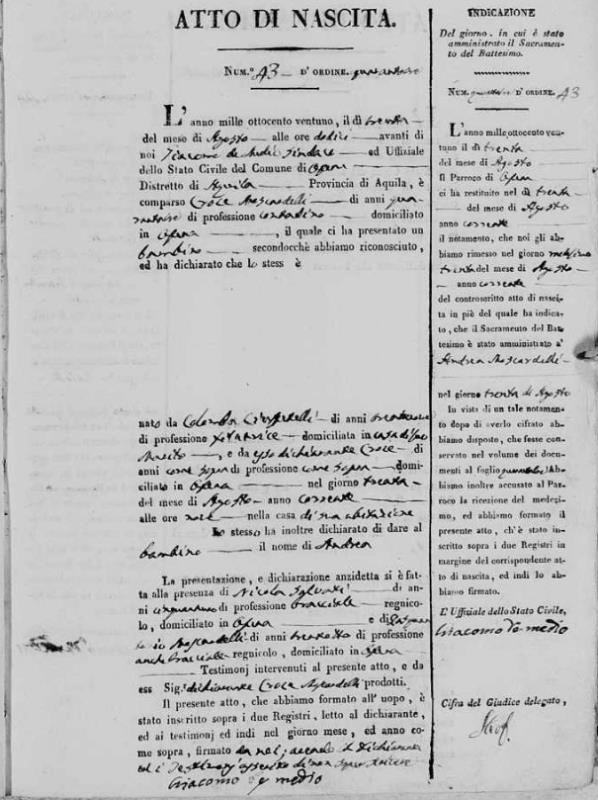 ATTO DI NASCITA.
NUM.º 43 D' ORDINE. quarantatre
L' anno mille ottocento ventuno, il dì trenta
del mese di Agosto alle ore dodici avanti di
noi Giacomo de Medio Sindaco ed Uffiziale
dello Stato Civile del Comune di Ofena
Distretto di Aquila Provincia di Aquila, è
comparso Croce Moscardelli di anni qua
rantatre di professione contadino domiciliato
in Ofena, il quale ci ha presentato un
bambino secondocchè abbiamo riconosciuto,
ed ha dichiarato che lo stess è
nato da Colomba di anni
di professione filatrice domiciliata in casa di suo
Marito, e da esso dichiarante Croce di
anni come sopra di professione come sopra domi-
ciliato in Ofena nel giorno trenta
del mese di Agosto anno corrente
alle ore nove nella casa di sua abitazione
Lo stesso ha inoltre dichiarato di dare al
bambino il nome di Andrea
La presentazione, e dichiarazione anzidetta si è fat-
ta alla presenza di Nicola Silveri di an-
ni cinquantuno di professione bracciale regnico-
lo, domiciliato in Ofena e di Gaspan
tonio Moscardelli di anni trentotto di professione
anche bracciale regnicolo, domiciliato in Ofena
Testimonj intervenuti al presente atto, e da
ess Sig. dichiarante Croce Moscardelli prodotti.
Il presente atto, che abbiamo formato all' uopo, è
stato inscritto sopra i due Registri, letto al dichiarante,
ed ai testimonj ed indi nel giorno mese, ed anno co-
me sopra, firmato da noi, avendo il dichiarante
ed i Testimonj asserito di non sapere scrivere
Giacomo de medio
INDICAZIONE
Del giorno, in cui è stato
amministrato il Sacramen-
to del Battesimo.
NUM. quarantatre D' ORDINE. 43
L' anno mille ottocento ven-
tuno il dì trenta
del mese di Agosto
il Parroco di Ofena
ci ha restituito nel dì trenta
del mese di Agosto
anno corrente
il notamento, che noi gli ab-
biamo rimesso nel giorno medesimo
trenta del mese di Agosto
anno corrente
del controscritto atto di nasci-
ta in piè del quale ha indica-
to, che il Sacramento del Bat-
tesimo è stato amministrato a'
Andrea Moscardelli
nel giorno trenta di Agosto
In vista di un tale notamen-
to dopo di averlo cifrato ab-
biamo disposto, che fesse con-
servato nel volume dei docu-
menti al foglio Ab-
biamo inoltre accusato al Par-
roco la ricezione del medesi-
mo, ed abbiamo formato il
presente atto, ch'è stato in-
scritto sopra i due Registri in
margine del corrispondente at-
to di nascita, ed indi lo ab-
biamo firmato.
L' Uffiziale dello Stato Civile,
Giacomo de medio
Cifra del Giudice delegato,